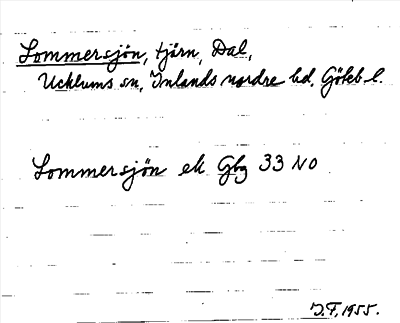 Sommersjön, tjärn, Dal,
Ucklums sn, Inlands nordre hd, Göteb. l.
Sommersjön ek Gbg 33 NO
J.F. 1955.